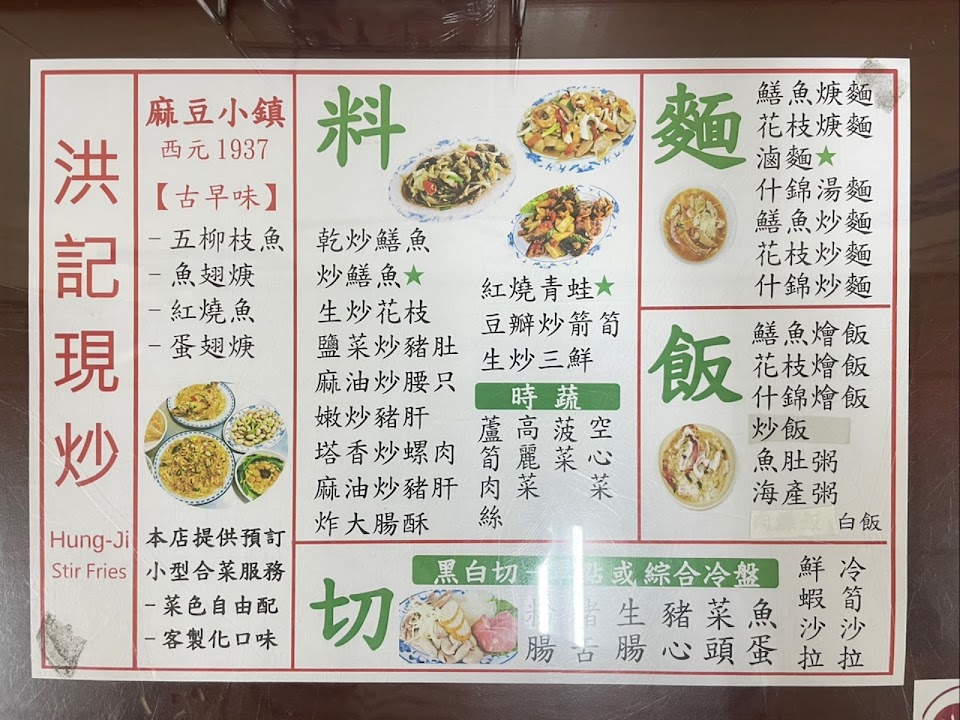 洪記現炒
Hung-Ji
Stir Fries
麻豆小鎮
西元1937
【古早味】
-五柳枝魚
-魚翅焿
-紅燒魚
-蛋翅焿
本店提供預訂
小型合菜服務
-菜色自由配
-客製化口味
料
乾炒鱔魚
炒鱔魚★
生炒花枝
鹽菜炒豬肚
麻油炒腰只
嫩炒豬肝
塔香炒螺肉
麻油炒豬肝
炸大腸酥
紅燒青蛙★
豆瓣炒箭筍
生炒三鮮
時蔬
蘆筍肉絲
高麗菜
菠菜
空心菜
麵
鱔魚焿麵
花枝焿麵
滷麵★
什錦湯麵
鱔魚炒麵
花枝炒麵
什錦炒麵
飯
鱔魚燴飯
花枝燴飯
什錦燴飯
炒飯
魚肚粥
海產粥
白飯
切
黑白切 點或綜合冷盤
粉腸
豬舌
生腸
豬心
菜頭
魚蛋
鮮蝦沙拉
冷筍沙拉